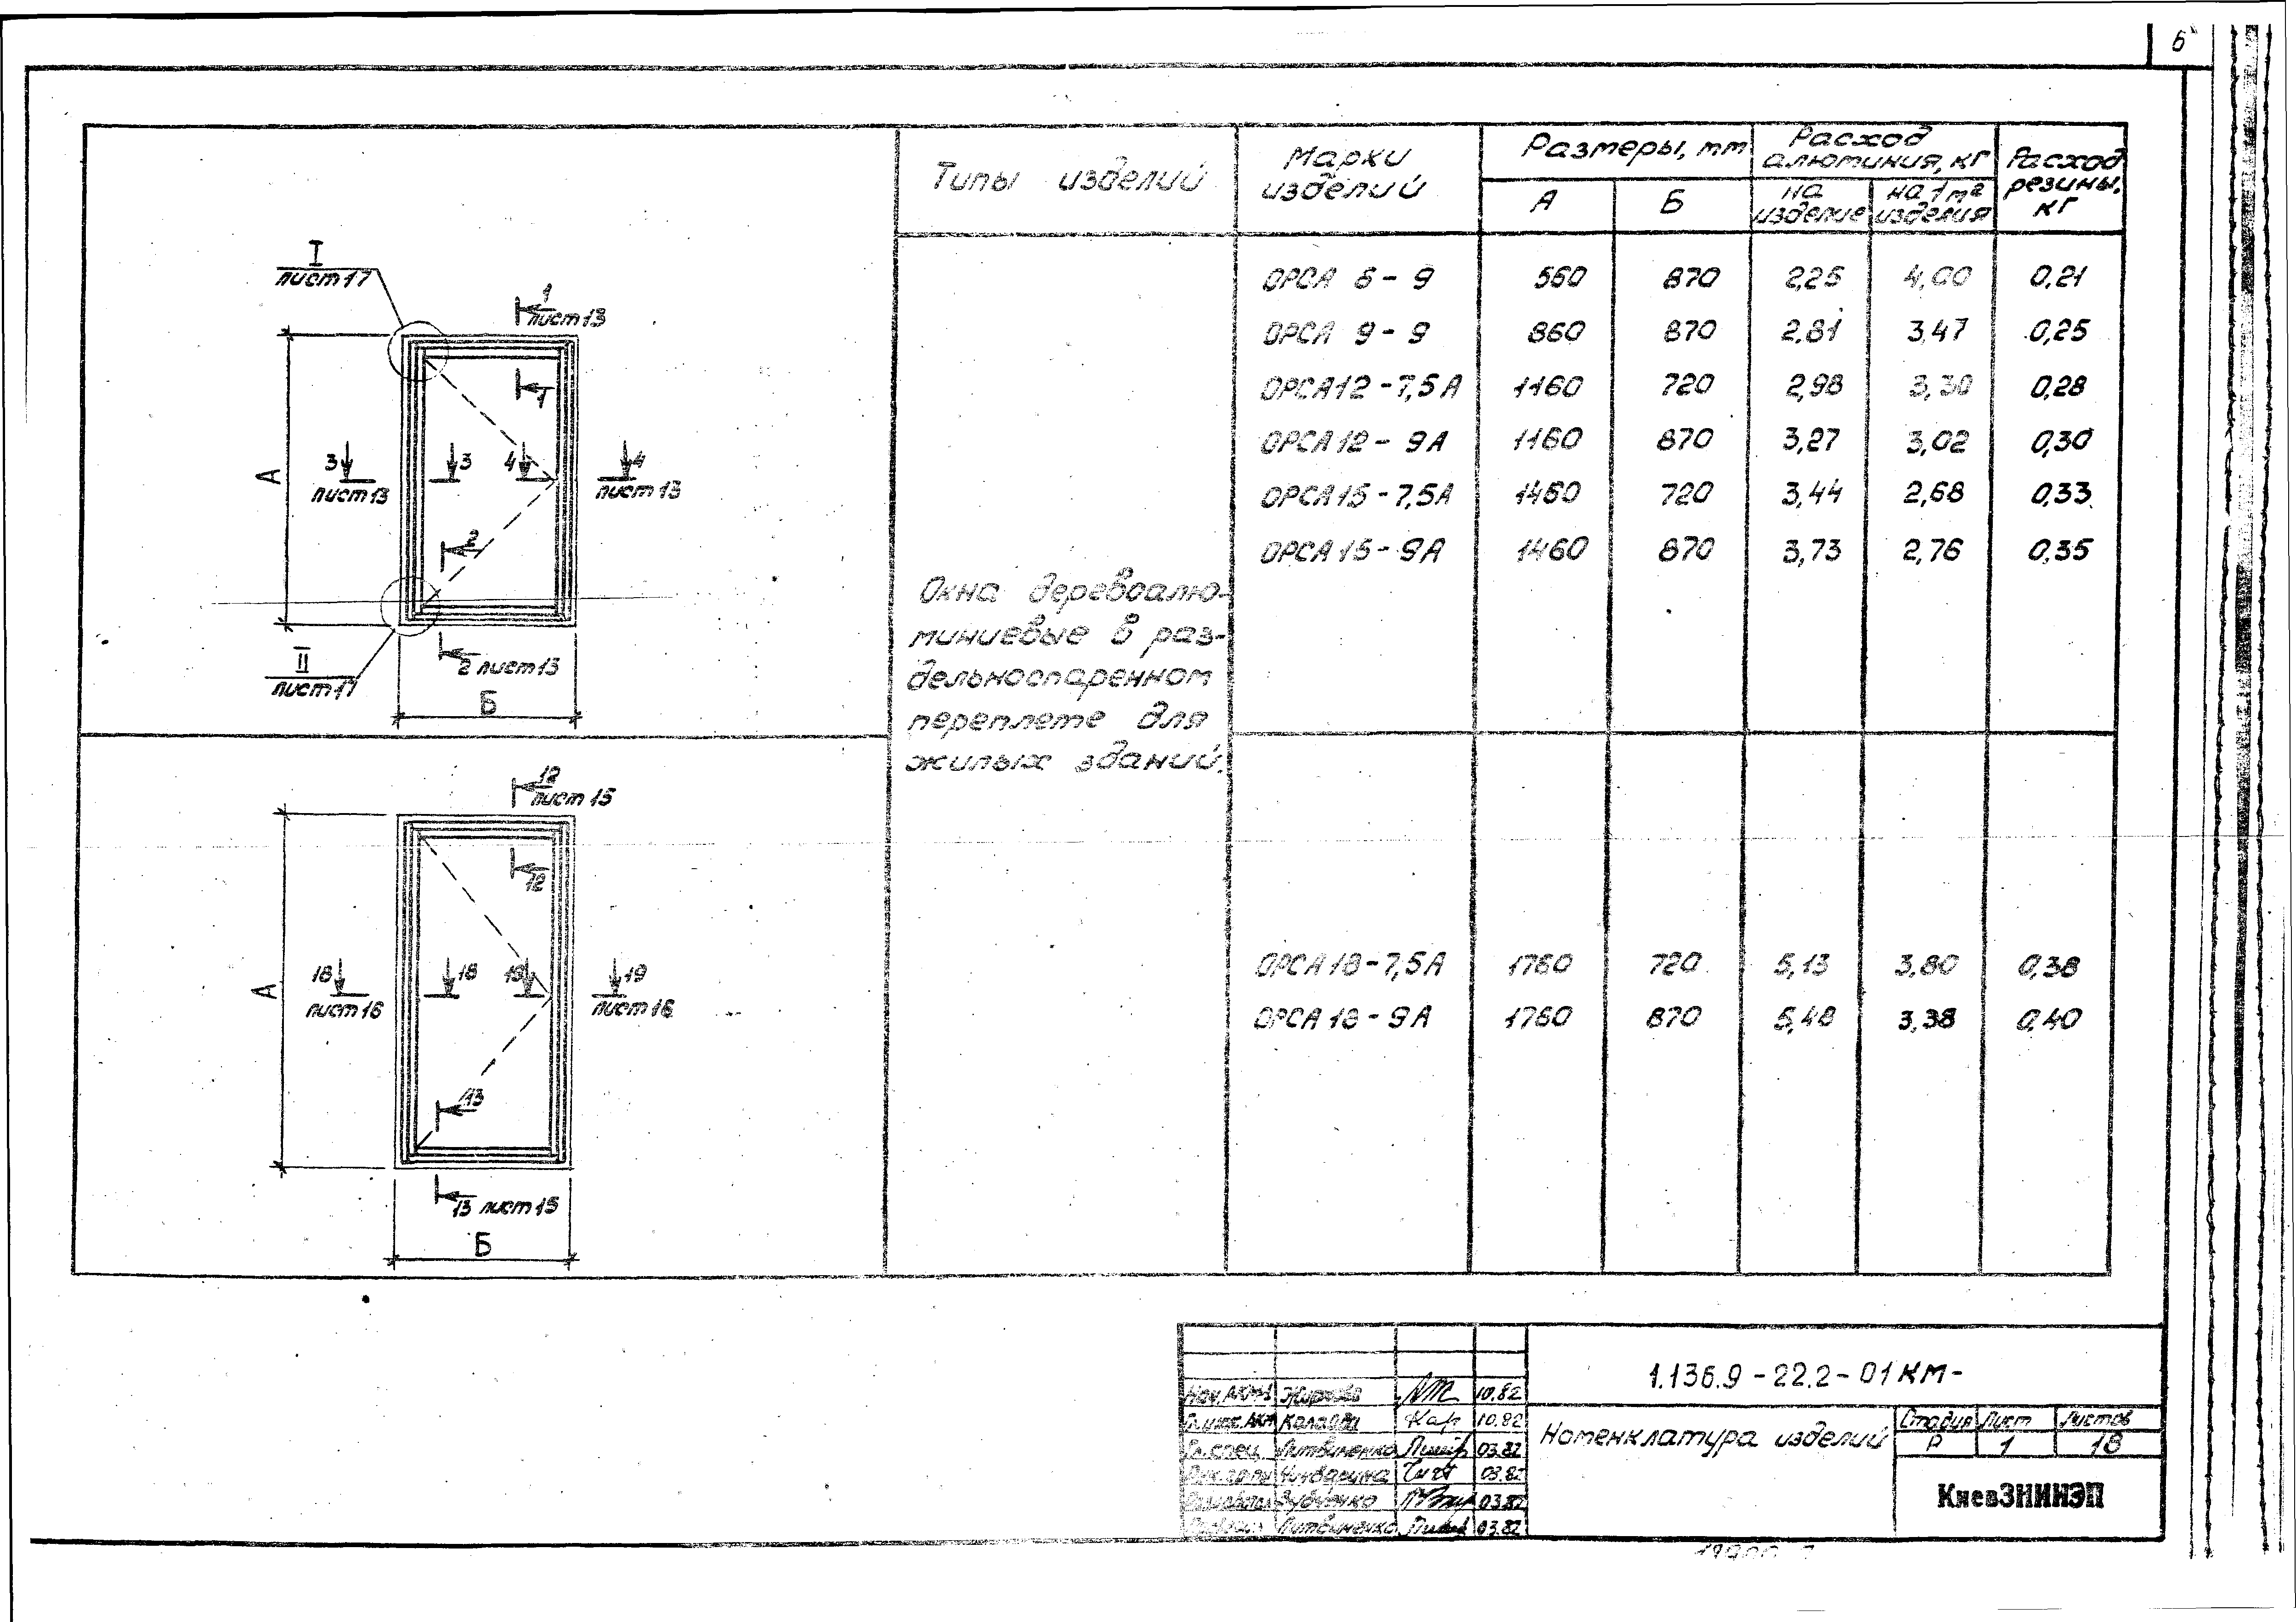 5
Типы изделий
Марки изделий
Размеры, мм
А
Б
Расход алюминия, кг
на изделие
на 1м² изделия
Расход резины, кг
I
лист 17
1
лист 13
1
А
3
3
4
4
лист 13
лист 13
2
2 лист 13
II
лист 17
Б
Окна деревоалю-
миниевые в раз-
дельноспаренном
переплете для
жилых зданий.
ОРСА 6 - 9 560 870 2,25 4,00 0,21
ОРСА 9 - 9 860 870 2,81 3,47 0,25
ОРСА 12 - 7,5А 1160 720 2,98 3,30 0,28
ОРСА 12 - 9А 1160 870 3,27 3,02 0,30
ОРСА 15 - 7,5А 1460 720 3,44 2,68 0,33
ОРСА 15 - 9А 1460 870 3,73 2,76 0,35
12
лист 15
12
А
18
18
19
19
лист 16
лист 16
13
13 лист 15
Б
ОРСА 18 - 7,5А 1760 720 5,13 3,80 0,38
ОРСА 18 - 9А 1760 870 5,48 3,38 0,40
1.136.9 - 22.2 - 01 КМ -
Номенклатура изделий
Стадия Лист Листов
Р 1 18
КиевЗНИИЭП
10.82
10.82
Гл. спец. Литвиненко 03.82
03.82
03.82
Литвиненко 03.82